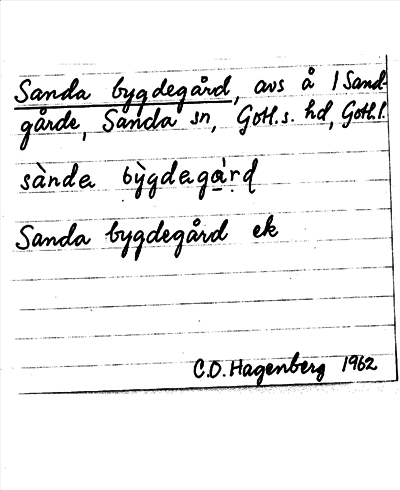 Sanda bygdegård, avs å 1 Sand-
gårde, Sanda sn, Gotl.s. hd, Gotl.l.
sànda bỳgdagàrd
Sanda bygdegård ek
C.O. Hagenberg 1962